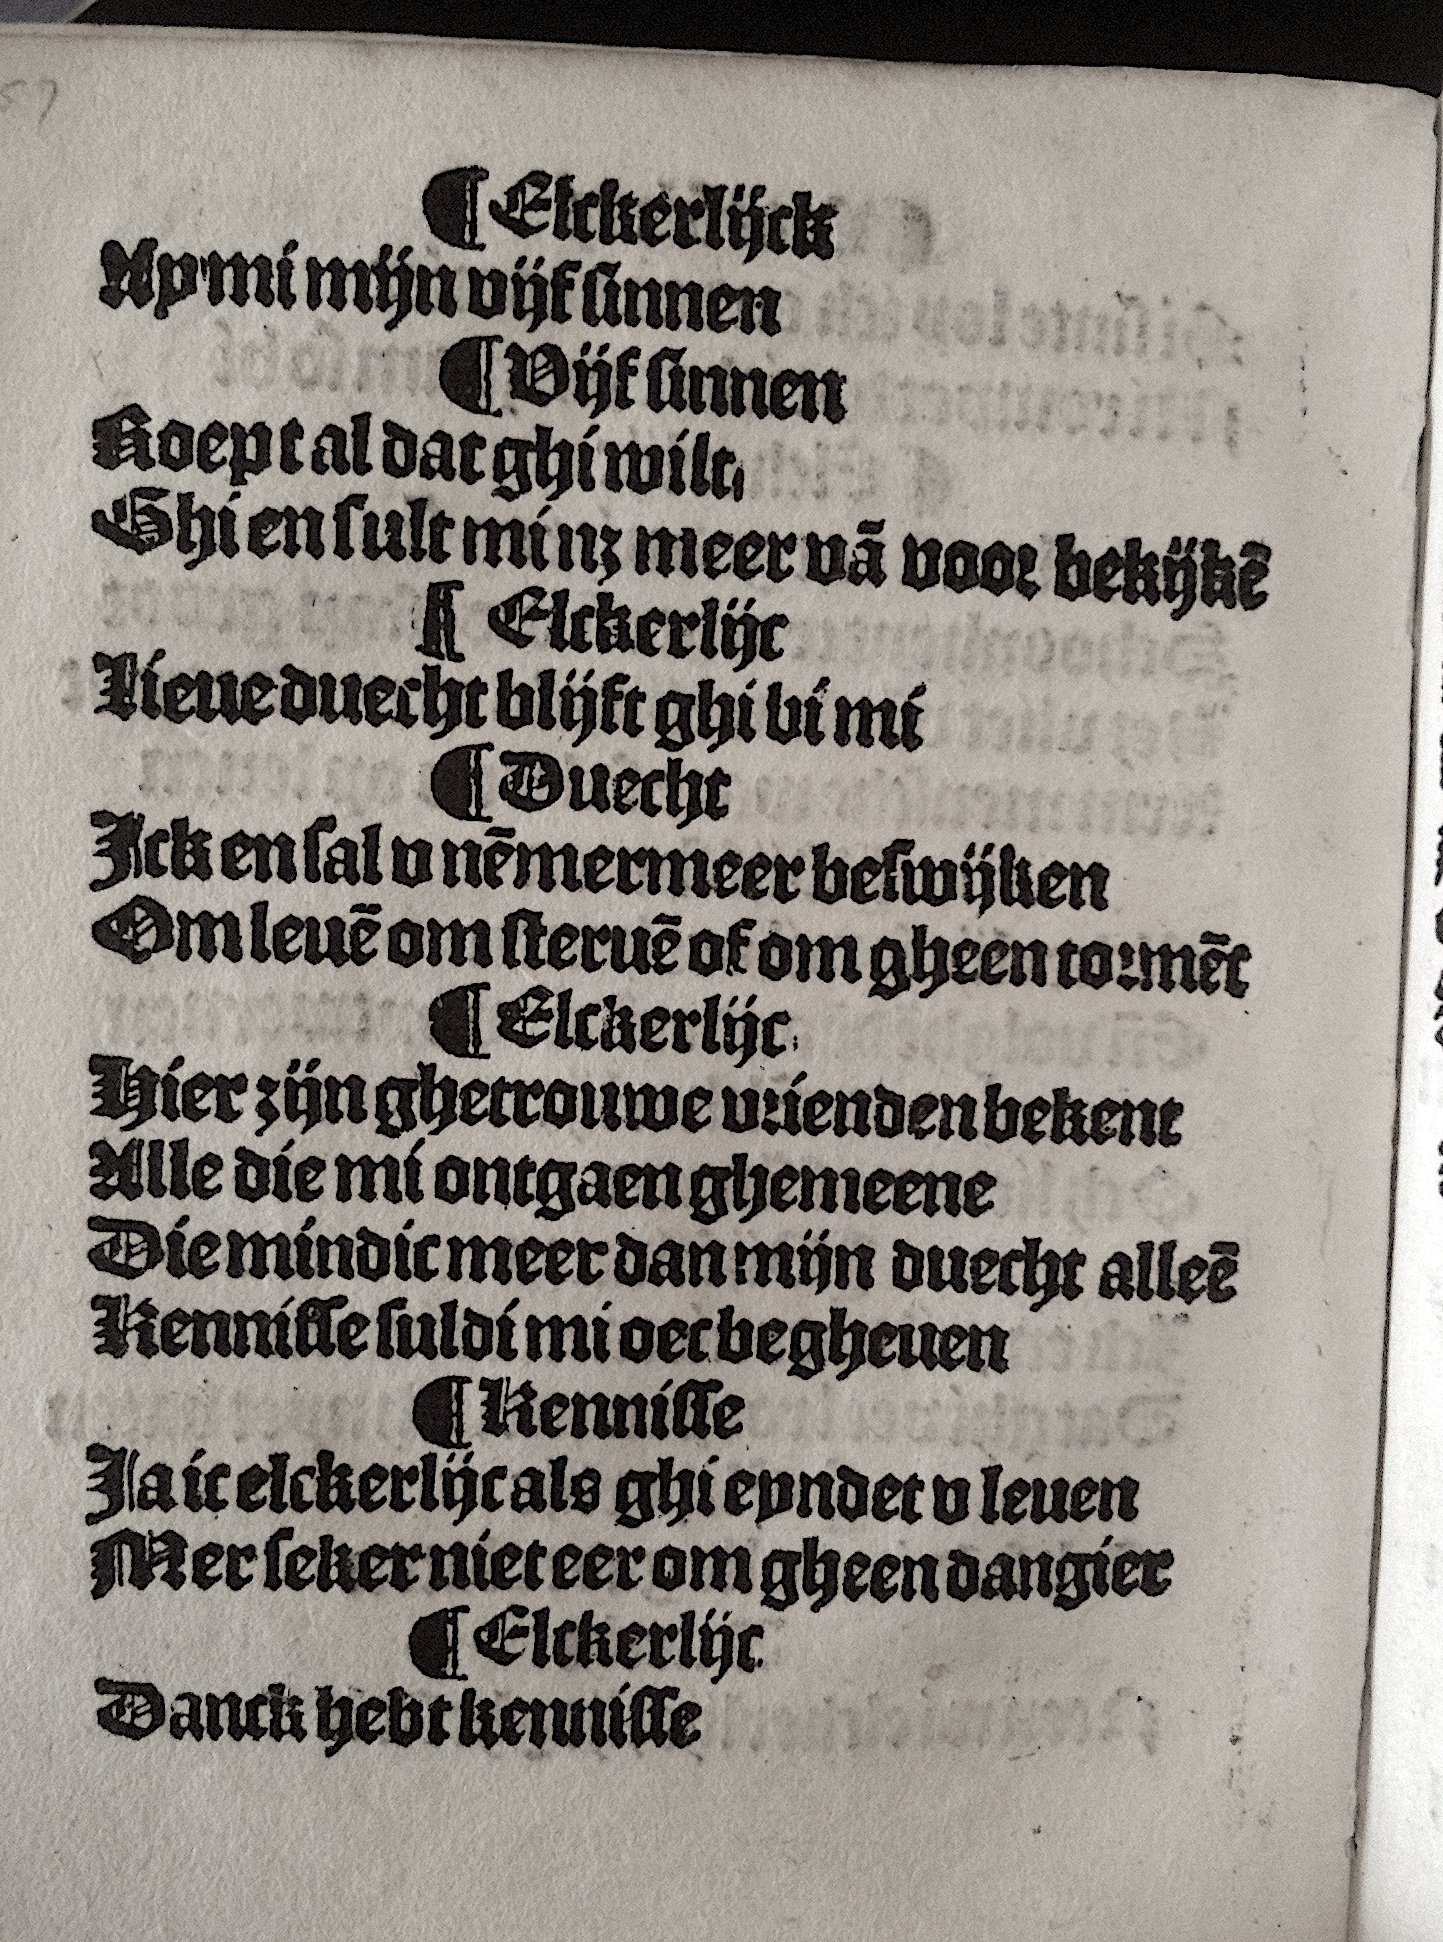 ¶ Elckerlijck
Ay mi mijn vijf sinnen
¶ Vijf sinnen
Roept al dat ghi wilt,
Ghi en sult mi nz meer vā voor bekijkē
¶ Elckerlijc
Lieue duecht blijft ghi bi mi
¶ Duecht
Jck en sal v nēmermeer beswijken
Om leuē om steruē of om gheen tormēt
¶ Elckerlijc.
Hier zijn ghetrouwe vrienden bekent
Alle die mi ontgaen ghemeene
Die mindic meer dan mijn duecht alleē
Kennisse suldi mi oec begheuen
¶ Kennisse
Ja ic elckerlijc als ghi eyndet v leuen
Mer seker niet eer om gheen dangier
¶ Elckerlijc.
Danck hebt kennisse